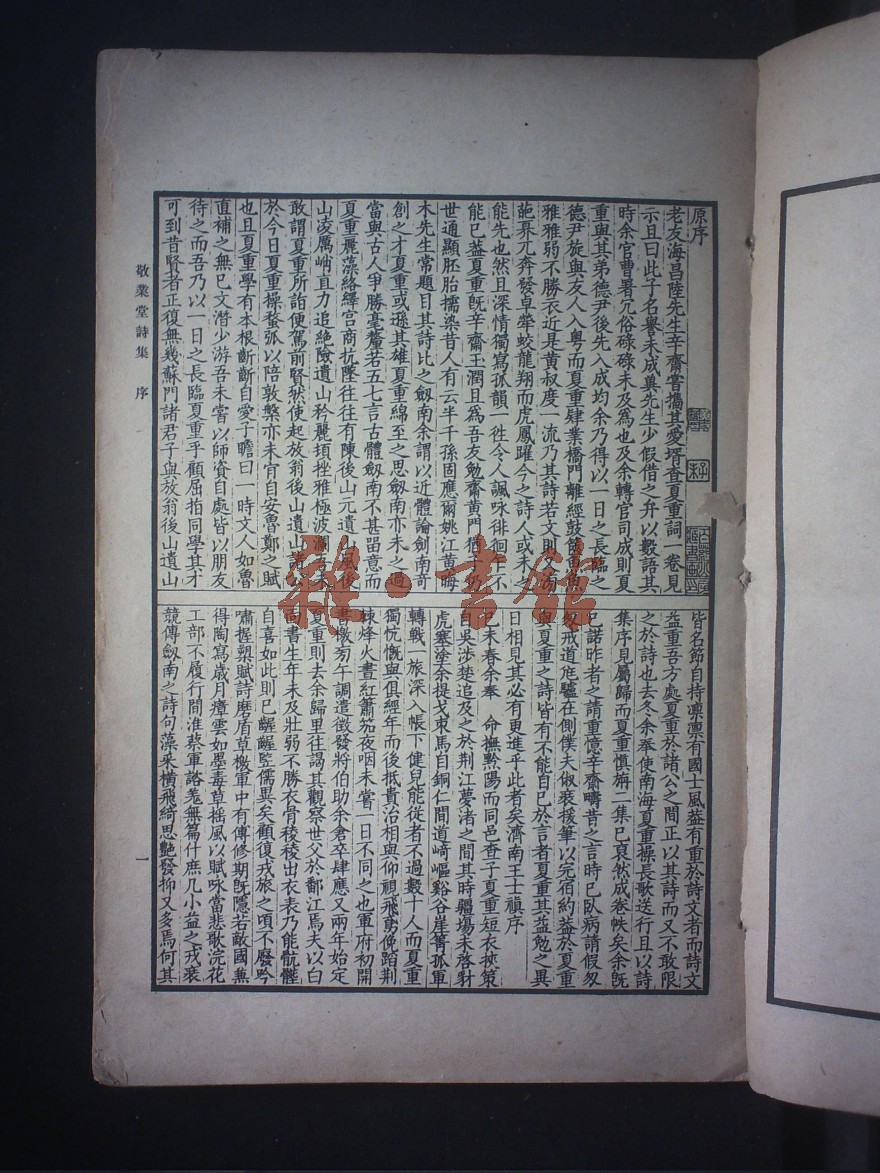 原序
老友海昌陸先生辛齋嘗攜其愛壻查夏重詞一卷見
示且曰此子名譽未成冀先生少假借之弁以數語其
時余官曹署冗俗碌碌未及爲也及余轉官司成則夏
重與其弟德尹後先入成均余乃得以一日之長臨之
德尹旋與友人入粤而夏重肆業橋門離經鼓篋魚魚
雅雅弱不勝衣近是黄叔度一流乃其詩若文則又
葩奡兀奔發卓犖蛟龍翔而虎鳳躍今之詩人或未之
能先也然且深情獨寫孤韻一往令人諷咏徘徊
能已葢夏重既辛齋玉潤且爲吾友勉齋黄門猶
世通顯胚胎擩染昔人有云半千孫固應爾姚江黄晦
木先生常題目其詩比之劔南余謂以近體論劍南奇
創之才夏重或遜其雄夏重綿至之思劔南亦未之過
當與古人爭勝毫釐若五七言古體劔南不甚畱意而
夏重麗藻絡繹宫商抗墜往往有陳後山元遺山風後
山凌厲峭直力追絶險遺山矜麗頓挫雅極波瀾吾未
敢謂夏重所詣便駕前賢然使起放翁後山遺山
於今日夏重操螯弧以陪敦槃亦未肯自安魯鄭之賦
也且夏重學有本根斷斷自愛子瞻曰一時文人如魯
直補之無已文潛少游吾未嘗以師資自處皆以朋友
待之而吾乃以一日之長臨夏重乎顧屈指同學其才
可到昔賢者正復無幾蘇門諸君子與放翁後山遺山
皆名節自持凛凛有國士風葢有重於詩文者而詩文
益重吾方處夏重於諸公之間正以其詩而又不敢限
之於詩也去冬余奉使南海夏重操長歌送行且以詩
集序見屬歸而夏重慎旃一集已裒然成卷帙矣余既
已諾昨者之請重憶辛齋疇昔之言時已臥病請假匆
匆戒道㡯驢在側僕夫俶裝援筆以完宿約葢於夏重
與夏重之詩皆有不能自已於言者夏重其益勉之異
日相見其必有更進乎此者矣濟南王士禛序
己未春余奉　命撫黔陽而同邑查子夏重短衣挾策
自吳涉楚追及之於荆江夢渚之間其時疆埸未啓豺
虎塞塗余提戈束馬自銅仁間道崎嶇谿谷崖箐孤軍
轉戰一旅深入帳下健兒能從者不過數十人而夏重
獨忼慨與俱經年而後抵貴治相與仰視飛鳶俛蹈荆
棘烽火晝紅蕭笳夜咽未嘗一日不同之也軍府初開
書檄旁午調遣徵發將伯助余倉卒肆應又兩年始定
夏重則去余歸里往謁其觀察世父於鄱江焉夫以白
面書生年未及壯弱不勝衣骨稜稜出衣表乃能骯髒
自喜如此則已齷齷竪儒異矣顧復戎旅之頃不廢吟
嘯握槊賦詩磨盾草檄軍中有傅修期旣隱若敵國兼
得陶寫歲月瘴雲如墨毒草搖風以賦咏當悲歌浣花
工部不履行間淮蔡軍諮羗無篇什庶几小益之戎裝
競傳劔南之詩句藻采横飛綺思艷發抑又多焉何其
敬業堂詩集　序
一
雜·書館